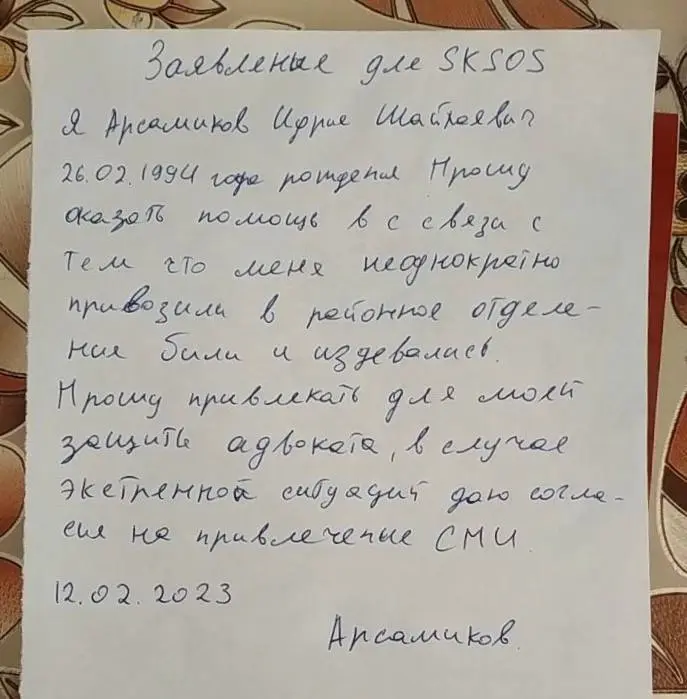 Заявление для SKSOS
Я Арсамиков Идрис Шайхаевич
26.02.1994 года рождения Прошу
оказать помощь в с связи с
тем что меня неоднократно
привозили в районное отделе-
ния били и издевались.
Прошу привлекать для моей
защиты адвоката, в случае
экстренной ситуаций даю согла-
сия на привлечение СМИ
12.02.2023
Арсамиков.